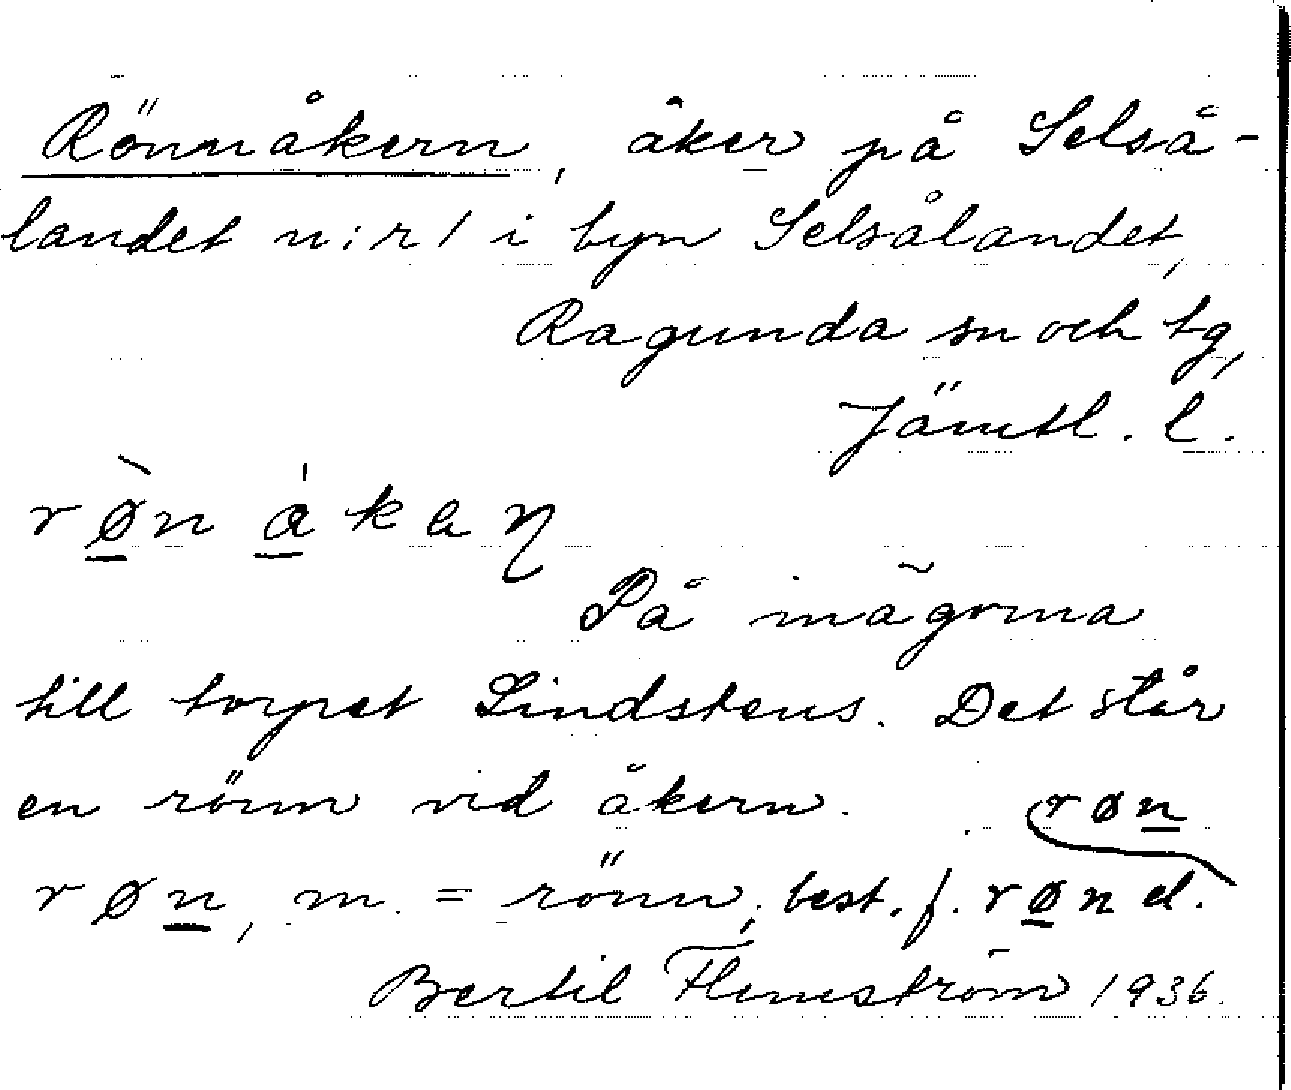 Rönnåkern, åker på Selså-
landet n:r 1 i byn Selsålandet,
Ragunda sn och tg,
Jämtl. l.
rø̲̀n a̲̍kaɳ
På inägorna
till torpet Lindstens. Det står
en rönn vid åkern.
røn̲
røn̲, m. = rönn; best. f. rø̲n el.
Bertil Flemström 1936.